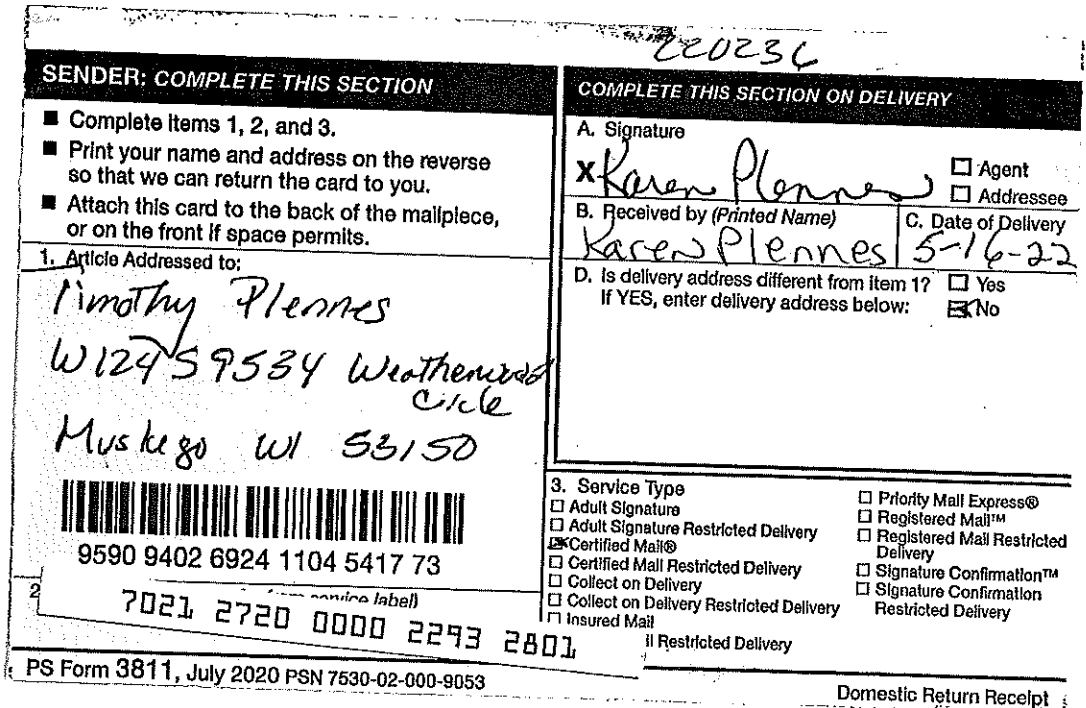 220236
SENDER: COMPLETE THIS SECTION
■ Complete items 1, 2, and 3.
■ Print your name and address on the reverse
so that we can return the card to you.
■ Attach this card to the back of the mailpiece,
or on the front if space permits.
1. Article Addressed to:
Timothy Plennes
W124 S9534 Weatherwood
Circle
Muskego WI 53150
9590 9402 6924 1104 5417 73
2
service label)
7021 2720 0000 2293 2801
COMPLETE THIS SECTION ON DELIVERY
A. Signature
X Karen Plennes
☐ Agent
☐ Addressee
B. Received by (Printed Name)
Karen Plennes
C. Date of Delivery
5-16-22
D. Is delivery address different from item 1? ☐ Yes
If YES, enter delivery address below: ☒ No
3. Service Type
☐ Adult Signature
☐ Adult Signature Restricted Delivery
☒ Certified Mail®
☐ Certified Mail Restricted Delivery
☐ Collect on Delivery
☐ Collect on Delivery Restricted Delivery
☐ Insured Mail
il Restricted Delivery
☐ Priority Mail Express®
☐ Registered Mail™
☐ Registered Mail Restricted
Delivery
☐ Signature Confirmation™
☐ Signature Confirmation
Restricted Delivery
PS Form 3811, July 2020 PSN 7530-02-000-9053
Domestic Return Receipt